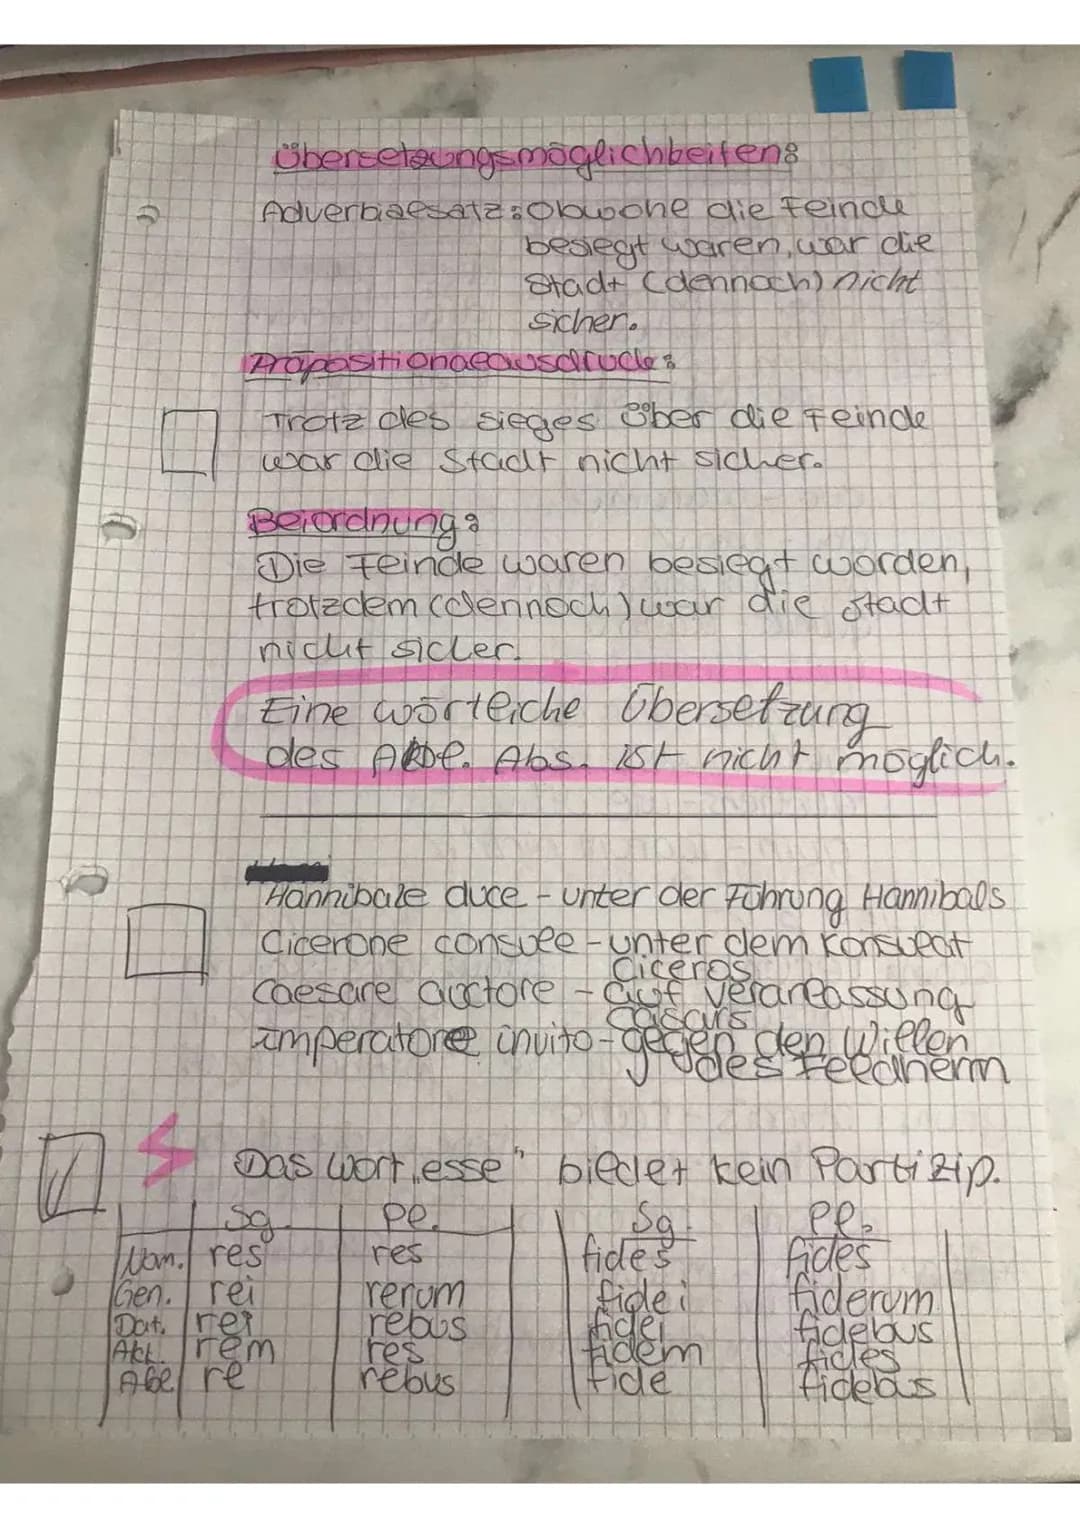 Übersetzungsmöglichkeiten:
Adverbialsatz: Obwohl die Feinde
besiegt waren, war die
Stadt (dennoch) nicht
sicher.
Präpositionalausdruck:
Trotz des Sieges über die Feinde
war die Stadt nicht sicher.
Beiordnung:
Die Feinde waren besiegt worden,
trotzdem (dennoch) war die Stadt
nicht sicher.
Eine wörtliche Übersetzung
des Abl. Abs. ist nicht möglich.
Hannibale duce - unter der Führung Hannibals
Cicerone consule - unter dem Konsulat
Ciceros
Caesare auctore - auf Veranlassung
Cäsars
imperatore invito - gegen den Willen
des Feldherrn
Das Wort „esse" bildet kein Partizip.
Sg. Pl. Sg. Pl.
Nom. res res fides fides
Gen. rei rerum fidei fiderum
Dat. rei rebus fidei fidebus
Akk. rem res fidem fides
Abl re rebus fide fidebus